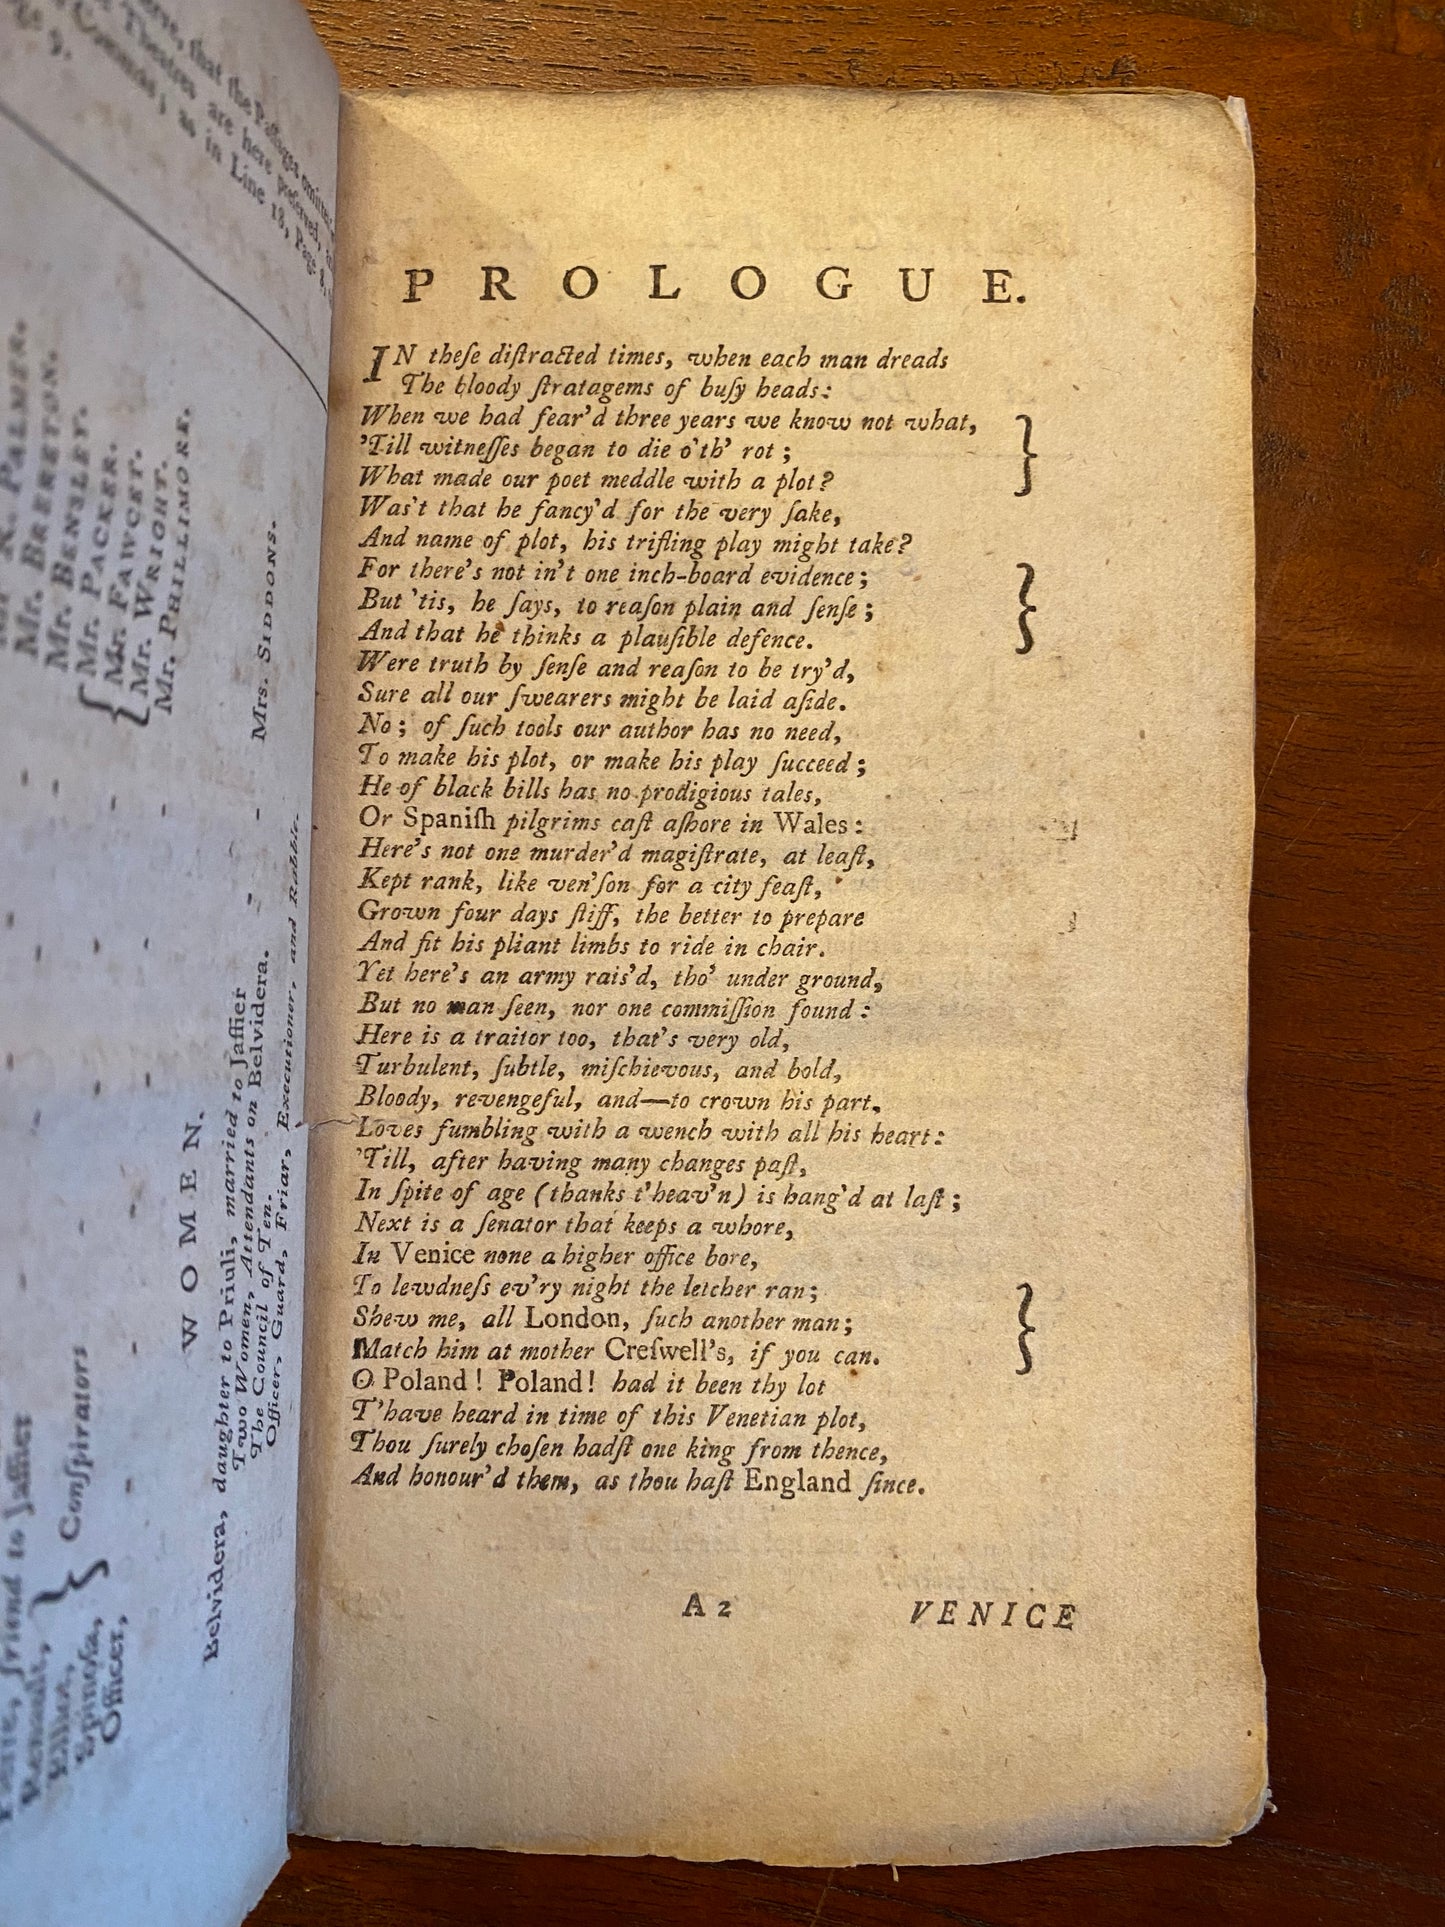 erve, that the Passages omitted
Theatres are here preserved,
Commas; as in Line 18, Page 8,
9.
R. PALMER.
Mr. BRERETON.
Mr. BENSLEY.
Mr. PACKER.
Mr. FAWCET.
Mr. WRIGHT.
Mr. PHILLIMORE.
friend to Jaffier
Renault,
Elliot,
Spinosa,
Conspirators
Officer,
WOMEN.
Belvidera, daughter to Priuli, married to Jaffier - - Mrs. SIDDONS.
Two Women, Attendants on Belvidera.
The Council of Ten.
Officer, Guard, Friar, Executioner, and Rabble.
PROLOGUE.
IN theſe diſtracted times, when each man dreads
The bloody ſtratagems of buſy heads:
When we had fear'd three years we know not what,
'Till witneſſes began to die o'th' rot;
What made our poet meddle with a plot?
Was't that he fancy'd for the very ſake,
And name of plot, his trifling play might take?
For there's not in't one inch-board evidence;
But 'tis, he ſays, to reaſon plain and ſenſe;
And that he thinks a plauſible defence.
Were truth by ſenſe and reaſon to be try'd,
Sure all our ſwearers might be laid aſide.
No; of ſuch tools our author has no need,
To make his plot, or make his play ſucceed;
He of black bills has no prodigious tales,
Or Spaniſh pilgrims caſt aſhore in Wales:
Here's not one murder'd magiſtrate, at leaſt,
Kept rank, like ven'ſon for a city feaſt,
Grown four days ſtiff, the better to prepare
And fit his pliant limbs to ride in chair.
Yet here's an army rais'd, tho' under ground,
But no man ſeen, nor one commiſſion found:
Here is a traitor too, that's very old,
Turbulent, ſubtle, miſchievous, and bold,
Bloody, revengeful, and—to crown his part,
Loves fumbling with a wench with all his heart:
'Till, after having many changes paſt,
In ſpite of age (thanks t'heav'n) is hang'd at laſt;
Next is a ſenator that keeps a whore,
In Venice none a higher office bore,
To lewdneſs ev'ry night the letcher ran;
Shew me, all London, ſuch another man;
Match him at mother Creſwell's, if you can.
O Poland! Poland! had it been thy lot
T'have heard in time of this Venetian plot,
Thou ſurely choſen hadſt one king from thence,
And honour'd them, as thou haſt England ſince.
A2 VENICE